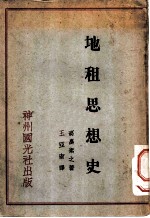 地租思想史
高畠素之著
王亞南譯
神州國光社出版